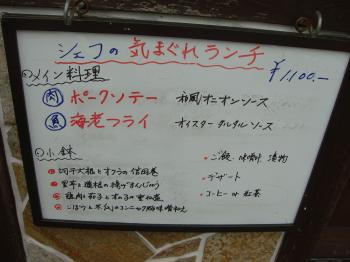 シェフの気まぐれランチ
¥1,100.-
◎メイン料理
肉 ポークソテー 和風オニオンソース
魚 海老フライ オイスタータルタルソース
◎小鉢
切干大根とオクラの信田巻
里芋と蓮根の揚げまんじゅう
鶏肉と茄子ときのこの重ね蒸
ごぼうと糸こんのコンニャク
・ご飯 味噌汁 漬物
・デザート
・コーヒー or 紅茶